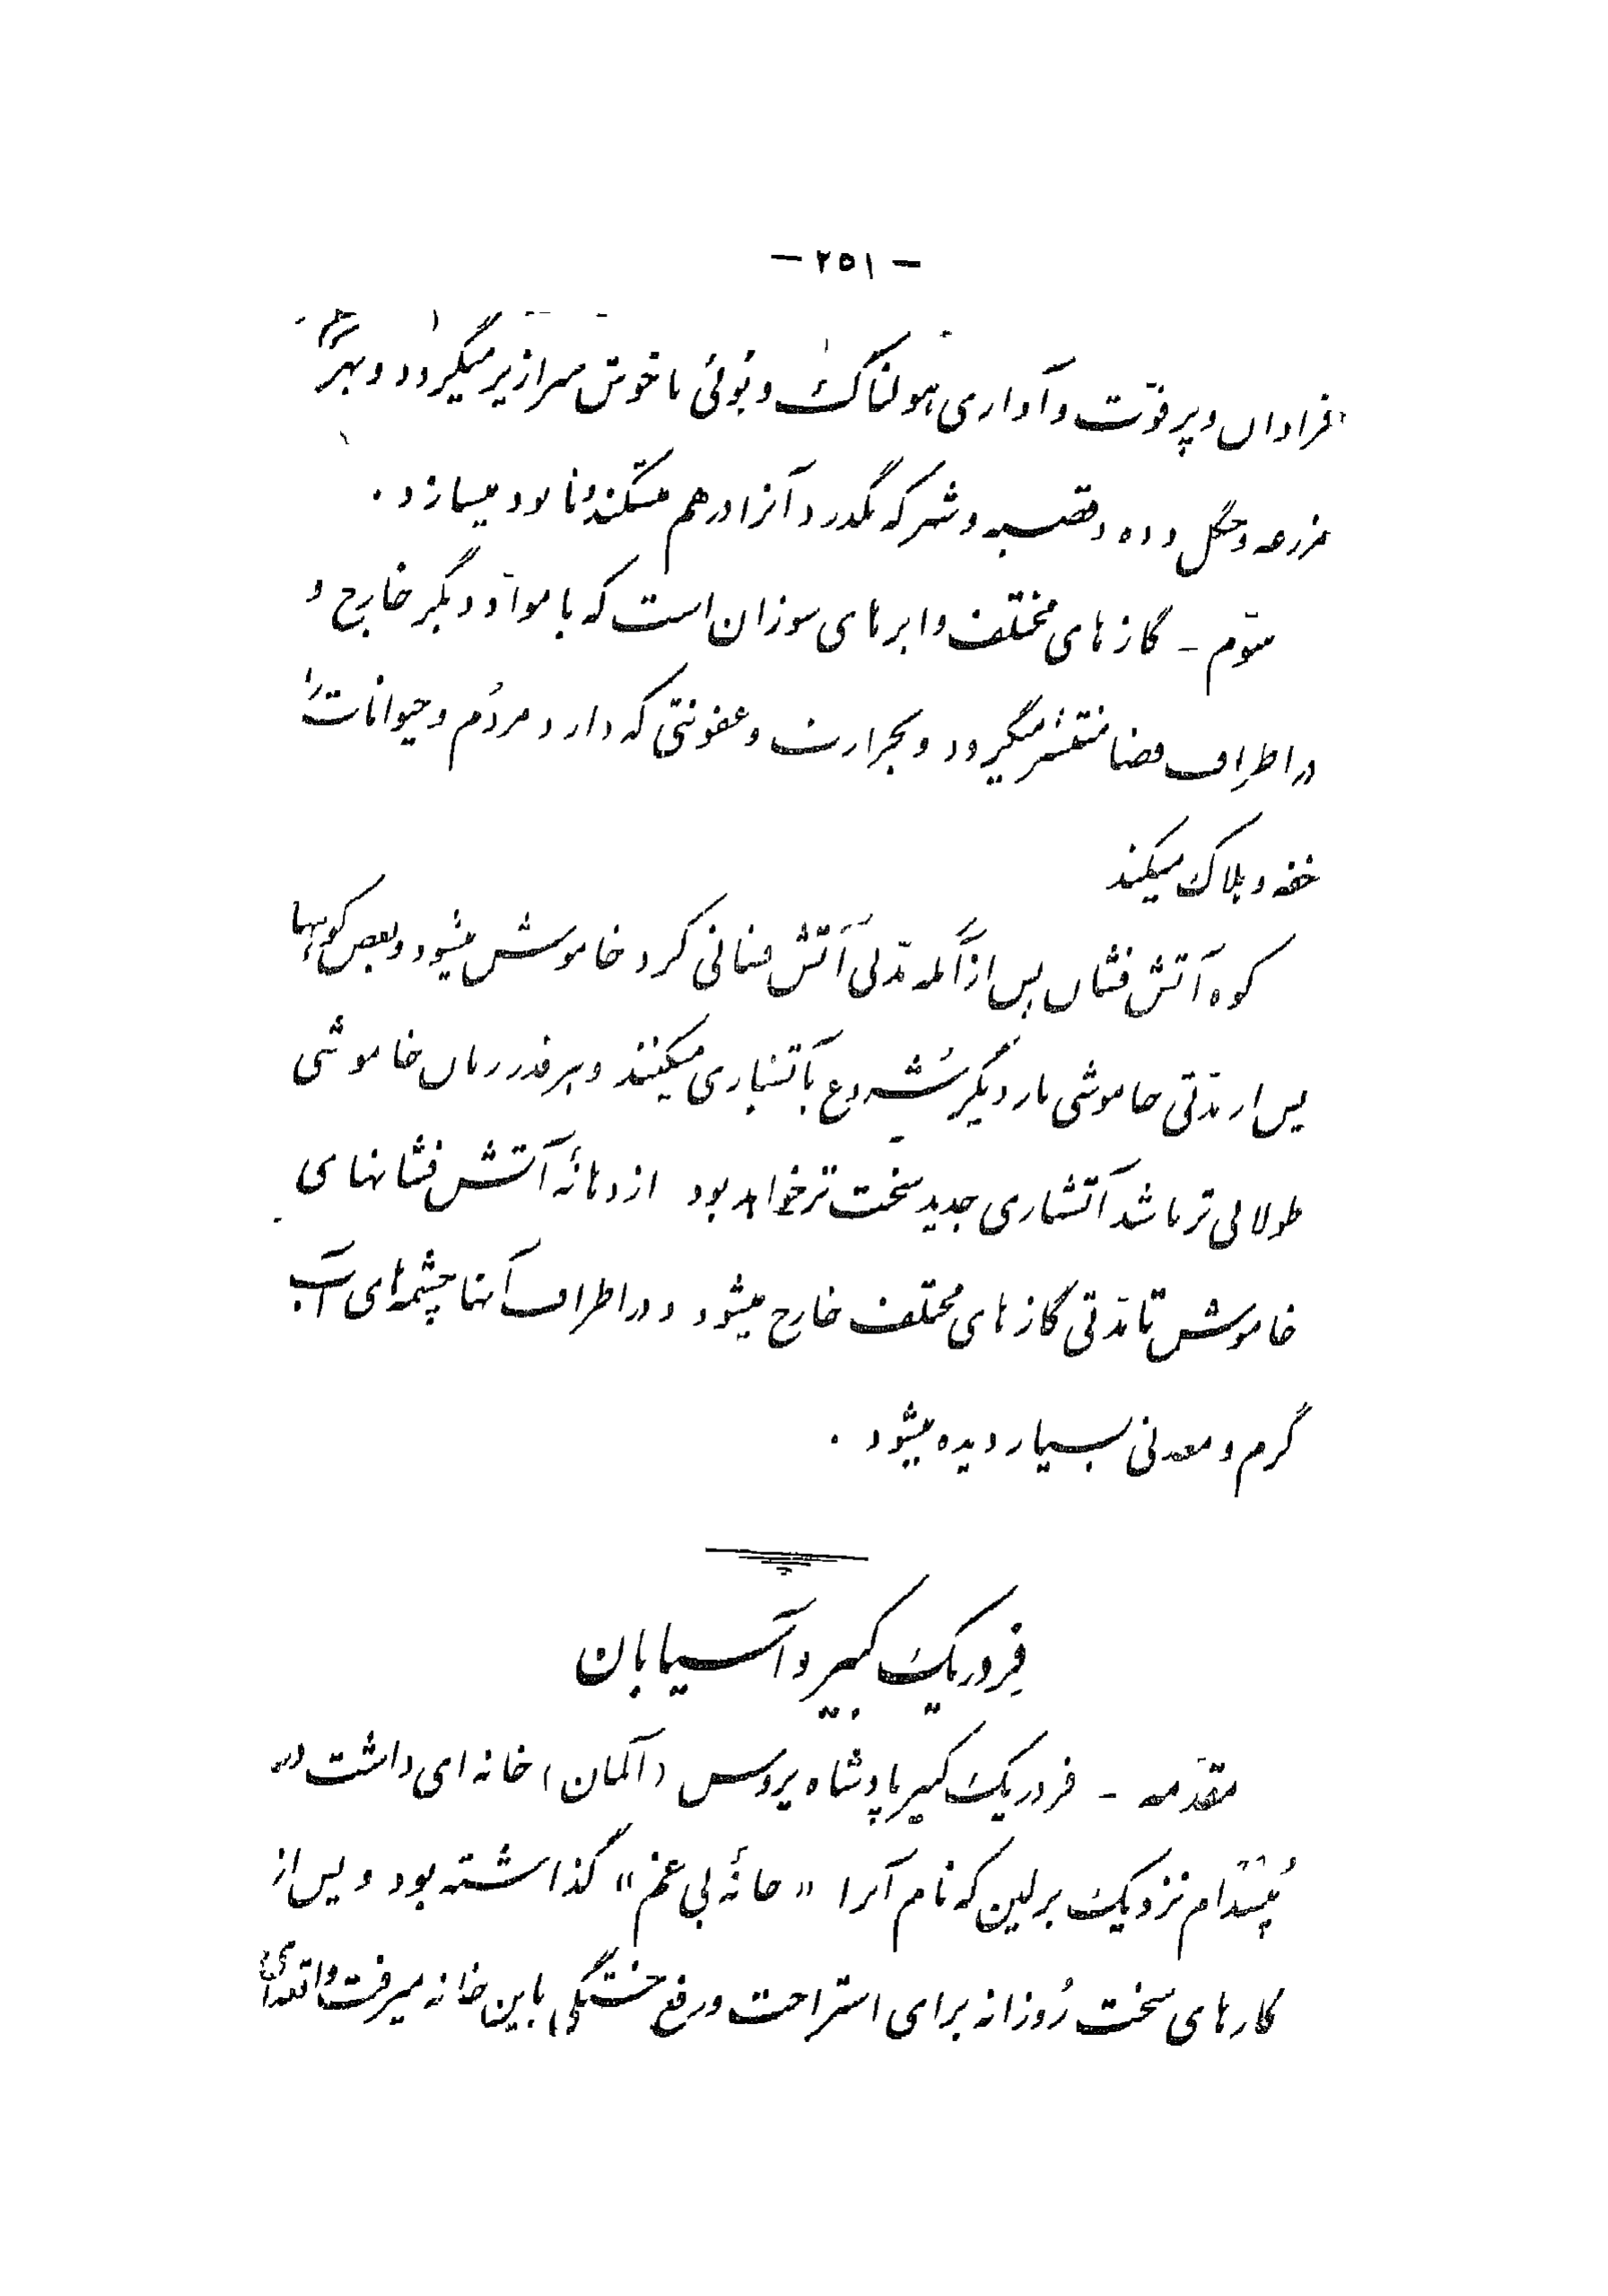 - ۲۵۱ -
فراوان و پر قوّت و آوازی هولناک و بوئی ناخوش سرازیر میگردد و بهر
مزرعه و جنگل و ده و قصبه و شهر که بگذرد آنرا درهم میشکند و نابود میسازد .
سوّم - گازهای مختلف و ابرهای سوزان است که با موادّ دیگر خارج و
در اطراف فضا منتشر میگردد و بحرارت و عفونتی که دارد مردُم و حیوانات را
خفه و هلاک میکند
کوه آتش فشان پس از آنکه مدّتی آتش فشانی کرد خاموش میشود و بعضی کوهها
پس از مدّتی خاموشی بار دیگر شُروع بآتشباری میکنند و هر قدر زمان خاموشی
طولانی تر باشد آتشباری جدید سخت تر خواهد بود از دهانهٔ آتش فشانهای
خاموش تا مدّتی گازهای مختلف خارج میشود و در اطراف آنها چشمه های آب
گرم و معدنی بسیار دیده میشود .
فِردریک کبیر و آسیابان
مقدّمه - فردریک کبیر پادشاه پروس (آلمان) خانه ای داشت در
پُتسدام نزدیک برلین که نام آنرا « خانهٔ بی غم » گذاشته بود و پس از
کارهای سخت رُوزانه برای استراحت و رفع خستگی باین خانه میرفت و اتّفاقی